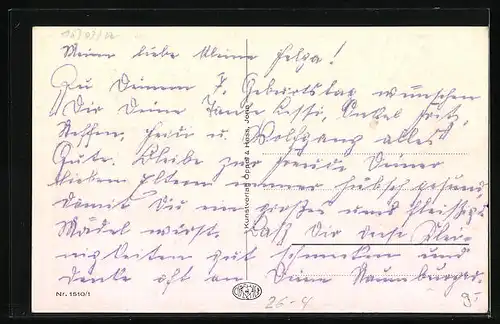 Meine liebe kleine Helga!
Zu Deinem 7. Geburtstag wünschen
Dir Deine Tante Lissi, Onkel Fritz,
Steffen, Heidi u. Wolfgang alles
Gute. Bleibe zur Freude Deiner
lieben Eltern immer hübsch gesund
damit Du ein großes und fleißiges
Mädel wirst. Laß Dir diese Klei-
nigkeiten gut schmecken und
denke oft an Deine Naumburger.
Kunstverlag Oppel & Hess, Jena
Nr. 1510/1
26-4